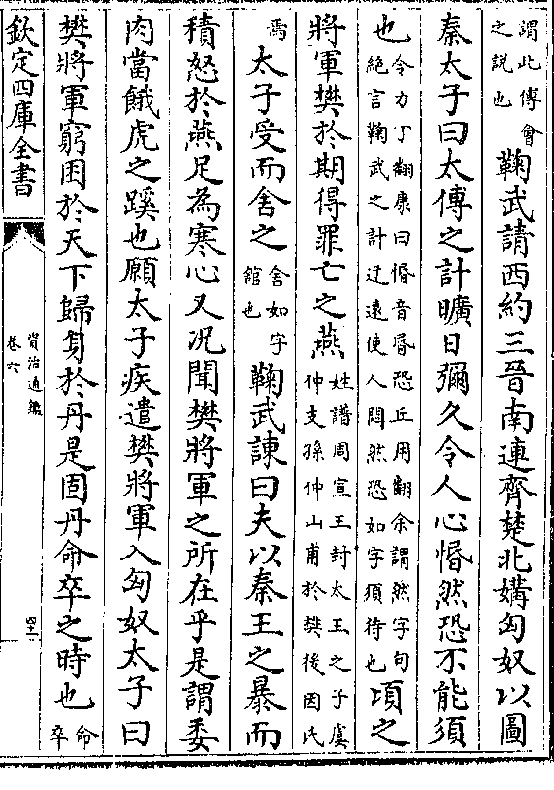 謂此傅會
之説也
鞠武請西約三晉南連齊楚北媾匈奴以圖
秦太子曰太傅之計曠日彌久令人心惛然恐不能須
也
令力丁翻康曰惛音昬恐丘用翻余謂然字句
絶言鞠武之計迂遠使人悶然恐如字須待也
頃之
將軍樊於期得罪亡之燕
姓譜周宣王封太王之子虞
仲支孫仲山甫於樊後因氏
焉
太子受而舍之
舍如字
館也
鞠武諌曰夫以秦王之暴而
積怒於燕足為寒心又况聞樊將軍之所在乎是謂委
肉當餓虎之蹊也願太子疾遣樊將軍入匈奴太子曰
樊將軍窮困於天下歸身於丹是固丹命卒之時也
命
卒
欽定四庫全書
資治通鑑
卷六